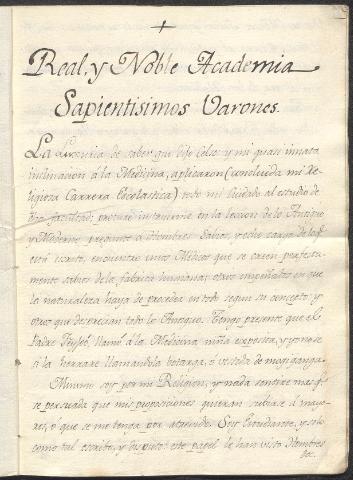 +
Real, y Noble Academia
Sapientisimos Varones.
La de saber que dijo Celso y mi quasi innata
inclinacion à la Medicina, aplicaron (concluida mi Re-
ligiosa Carrera Escolastica) todo mi cuidado al estudio de
dha facultad; procurè instruirme en la leccion de lo Antiguo
y Moderno, preguntè à Hombres Sabios, y echo cargo de lo q.
està escrito, encuentro unos Medicos que se creen perfecta-
mente sabios de la fabrica humana; otros empeñados en que
la naturaleza haya de proceder en todo segun su concepto; y
otros que desprecian todo lo Antiguo. Tengo presente que el
Padre llamò à la Medicina niña exposita, y yo no sè
si la herrare llamandola botarga, ò vestida de mogiganga.
Minimo soy por mi Religion, y nada sentirè mas q.
se persuada que mis proposiciones quieran subirse à mayo-
res, ò que se me tenga por atrevido. Soy Estudiante, y solo
como tal escribo, y disputo: este papel le han visto Hombres